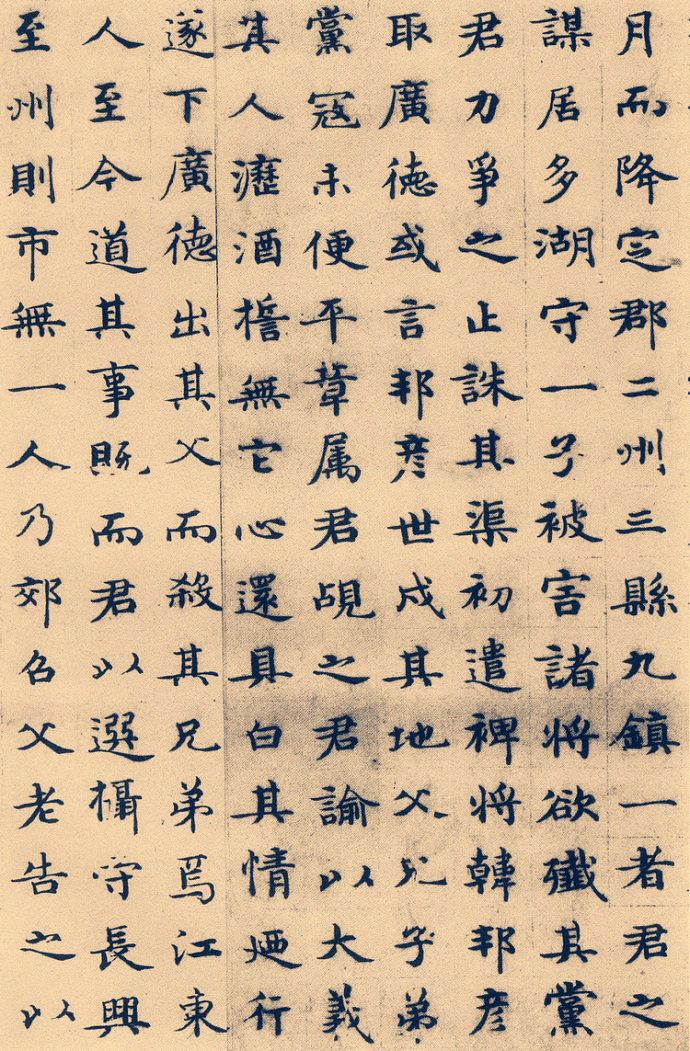 月而降定郡二州三縣九鎮一者君之
謀居多湖守一子被害諸將欲殲其黨
君力爭之止誅其渠初遣裨將韓邦彥
取廣德或言邦彥世戍其地父兄子弟
黨冦未便平章属君覘之君諭以大義
其人瀝酒誓無它心還具白其情廼行
遂下廣德出其父而殺其兄弟焉江東
人至今道其事既而君以選攝守長興
至州則市無一人乃郊召父老告之以